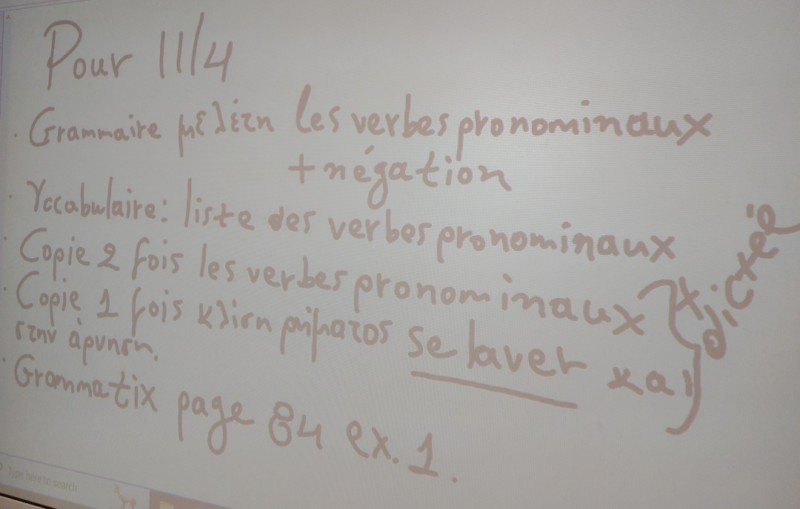 Pour 11/4
· Grammaire μελέτη les verbes pronominaux
+ négation
· Vocabulaire: liste des verbes pronominaux
· Copie 2 fois les verbes pronominaux
· Copie 1 fois κλίση ρήματος se laver και
στην άρνηση.
} dictée
· Grammatix page 84 ex. 1.
Type here to search